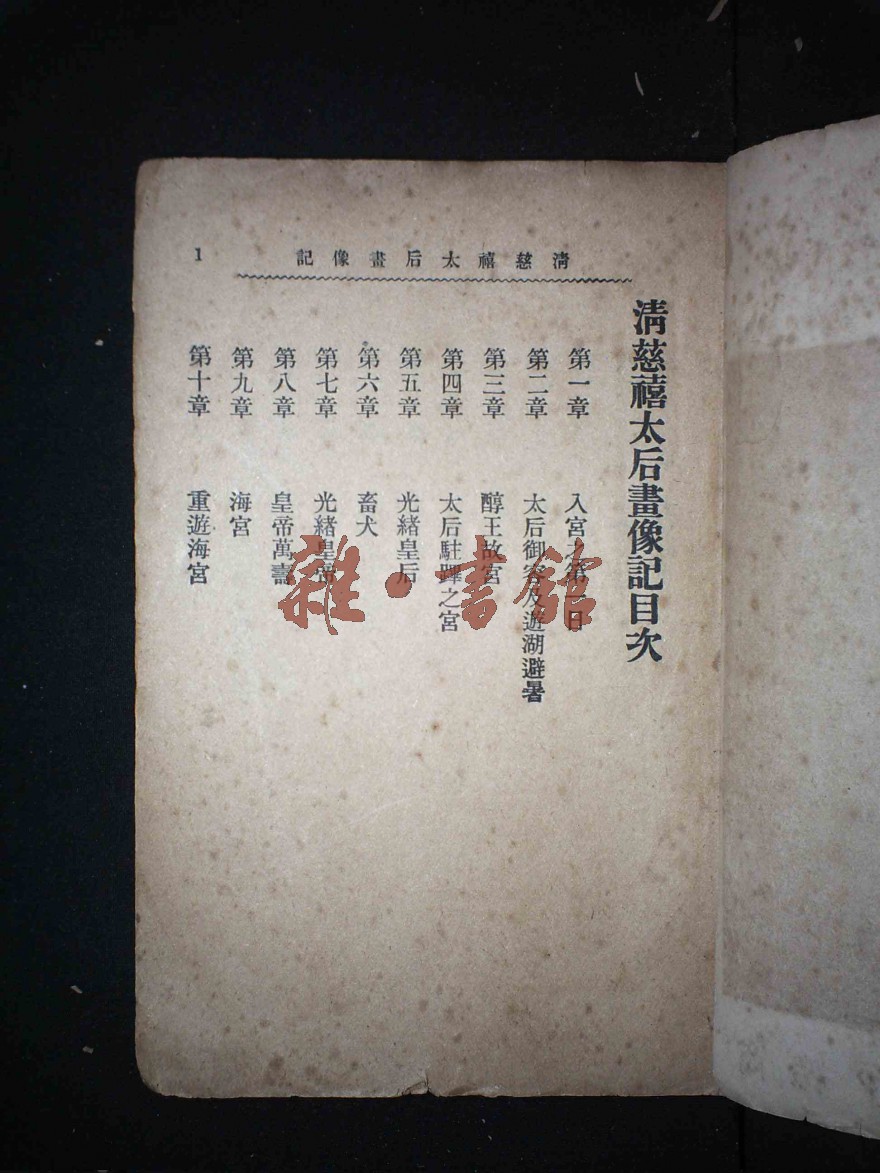 清慈禧太后畫像記
1
清慈禧太后畫像記目次
第一章 入宮之第一日
第二章 太后御容及遊湖避暑
第三章 醇王故宮
第四章 太后駐蹕之宮
第五章 光緒皇后
第六章 畜犬
第七章 光緒皇帝
第八章 皇帝萬壽
第九章 海宮
第十章 重遊海宮
雜·書館